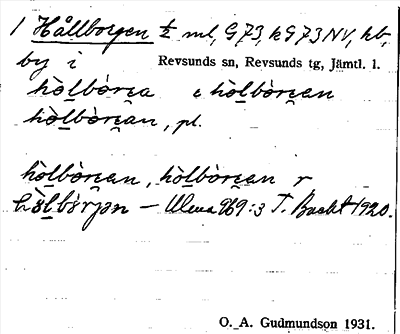 1 Hållborgen ½ ml, G73, kG73NV, hb,
by i Revsunds sn, Revsunds tg, Jämtl. l.
hòlbòrɛa hòlbòrɛan
hòlbòrɛan, pl.
hòlbòrɛan, hòlbòrɛan r
hòlbòrjən – Ulma 969:3 T. Bucht 1920.
O. A. Gudmundson 1931.